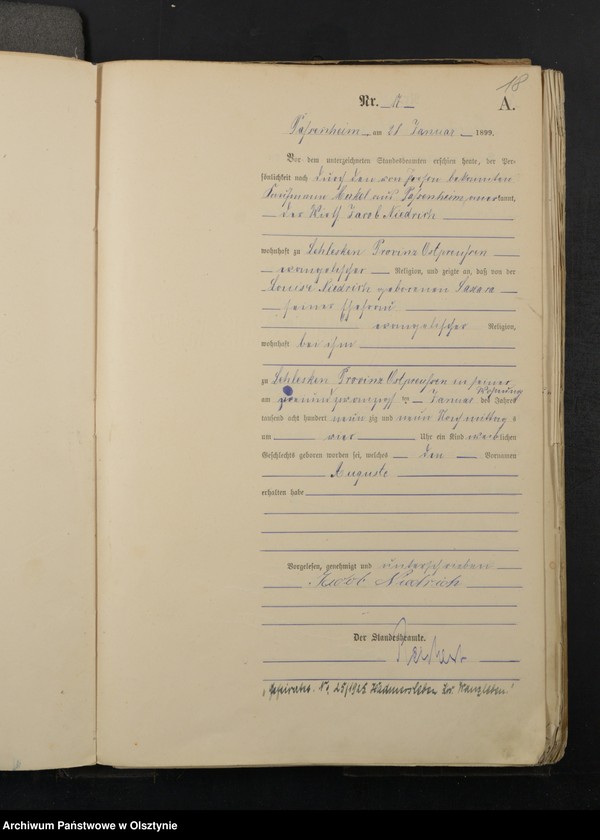 18
Nr.
A.
Passenheim, am 21 Januar 1899.
Vor dem unterzeichneten Standesbeamten erschien heute, der Per-
sönlichkeit nach durch den von Person bekannten
Kaufmann aus Passenheim, anerkannt,
der Wirth Jacob Niedrich
wohnhaft zu Schlesken Provinz Ostpreußen
evangelischer Religion, und zeigte an, daß von der
Louise Niedrich geborenen
seiner Ehefrau
evangelischer Religion,
wohnhaft bei ihm
zu Schlesken, Provinz Ostpreußen in seiner
Wohnung
am ten Januar des Jahres
tausend acht hundert neun zig und neun Nachmittags
um vier Uhr ein Kind weiblichen
Geschlechts geboren worden sei, welches den Vornamen
Auguste
erhalten habe
Vorgelesen, genehmigt und unterschrieben
Jacob Niedrich
Der Standesbeamte.
"Geheiratet Nr. 25/1925 Hadmersleben Kr. Wanzleben."
Archiwum Państwowe w Olsztynie